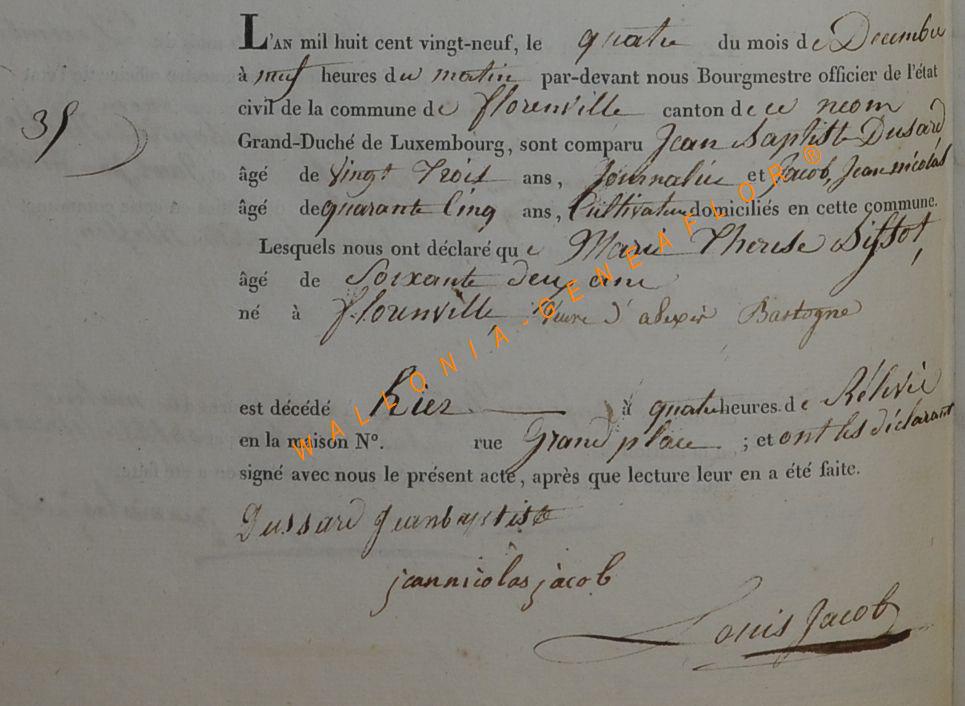 L'AN mil huit cent vingt-neuf, le quatre du mois de Decembre
à neuf heures du matin par-devant nous Bourgmestre officier de l'état
civil de la commune de florenville canton de ce nom
35
Grand-Duché de Luxembourg, sont comparu Jean Baptiste Dusard
âgé de vingt Trois ans, Journalier et Jacob, Jean nicolas
âgé de quarante Cinq ans, Cultivateur domiciliés en cette commune.
Lesquels nous ont déclaré que Marie Therese Sissot,
âgé de Soixante deux ans
né à florenville veuve d'alexis Bastogne
WALLONIA-GENEAFLOR®
est décédé hier à quatre heures de Rélévée
en la maison N°. rue Grand place ; et ont les déclarant
signé avec nous le présent acte, après que lecture leur en a été faite.
Dussard Jeanbaptiste
jeannicolas jacob
Louis Jacob